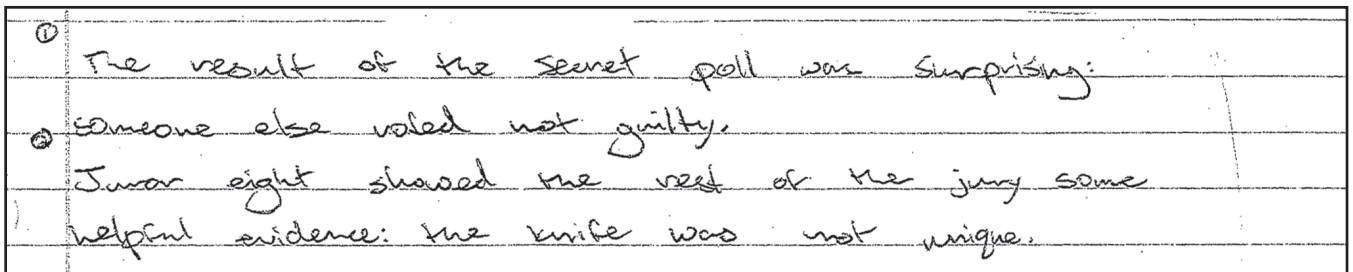 ① The result of the secret poll was surprising:
② someone else voted not guilty.
Juror eight showed the rest of the jury some
helpful evidence: the knife was not unique.